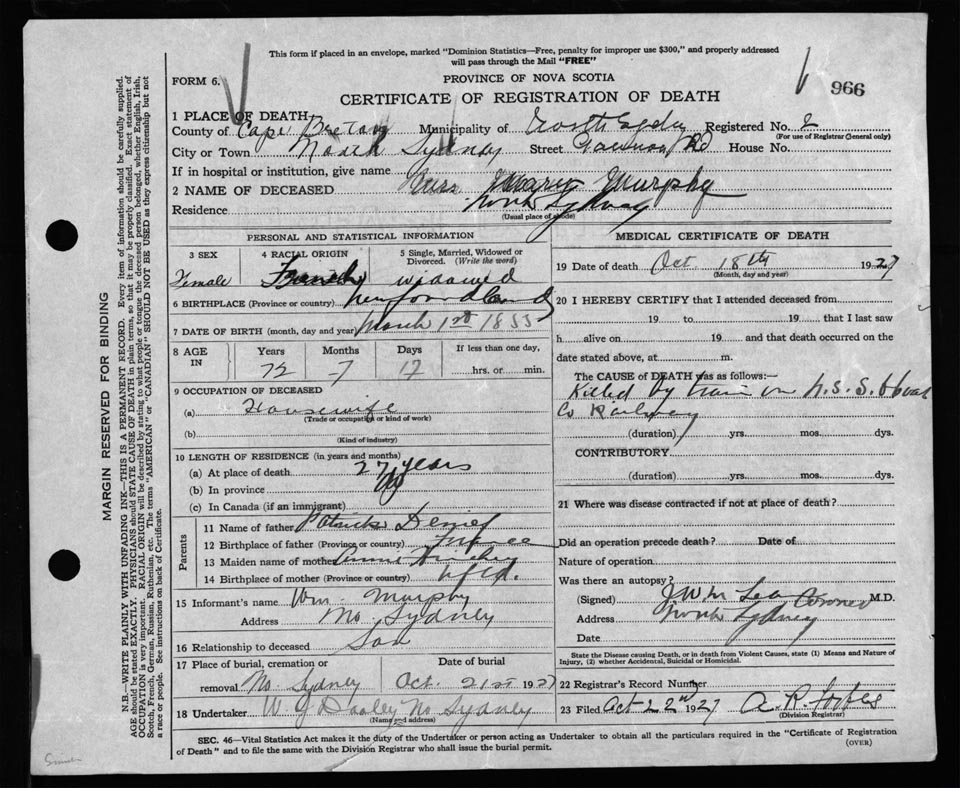 This form if placed in an envelope, marked "Dominion Statistics—Free, penalty for improper use $300," and properly addressed
will pass through the Mail "FREE"
FORM 6. PROVINCE OF NOVA SCOTIA 966
CERTIFICATE OF REGISTRATION OF DEATH
1 PLACE OF DEATH
County of Cape Breton Municipality of North Sydney Registered No. 2
(For use of Registrar General only)
City or Town North Sydney Street Rd House No.
If in hospital or institution, give name
2 NAME OF DECEASED Mrs Mary Murphy
Residence North Sydney
(Usual place of abode)
PERSONAL AND STATISTICAL INFORMATION
3 SEX 4 RACIAL ORIGIN 5 Single, Married, Widowed or
Divorced. (Write the word)
Female French widowed
6 BIRTHPLACE (Province or country) Newfoundland
7 DATE OF BIRTH (month, day and year) March 1st 1855
8 AGE IN Years Months Days If less than one day,
72 7 17 hrs. or min.
9 OCCUPATION OF DECEASED
(a) Housewife
(Trade or occupation or kind of work)
(b)
(Kind of industry)
10 LENGTH OF RESIDENCE (in years and months)
(a) At place of death 27 years
(b) In province
(c) In Canada (if an immigrant)
Parents
11 Name of father Patrick
12 Birthplace of father (Province or country) France
13 Maiden name of mother Annie
14 Birthplace of mother (Province or country) Nfld.
15 Informant's name Wm. Murphy
Address No. Sydney
16 Relationship to deceased Son
17 Place of burial, cremation or Date of burial
removal No. Sydney Oct. 21st 1927
18 Undertaker W. J Dooley No Sydney
(Name and address)
MEDICAL CERTIFICATE OF DEATH
19 Date of death Oct. 18th 1927
(Month, day and year)
20 I HEREBY CERTIFY that I attended deceased from
19 to 19 that I last saw
h alive on 19 and that death occurred on the
date stated above, at m.
The CAUSE of DEATH was as follows:—
Killed by train on N. S. S. & Coal
Co Railway
(duration) yrs. mos. dys.
CONTRIBUTORY
(duration) yrs. mos. dys.
21 Where was disease contracted if not at place of death?
Did an operation precede death? Date of
Nature of operation
Was there an autopsy?
(Signed) Coroner M.D.
Address North Sydney
Date
State the Disease causing Death, or in death from Violent Causes, state (1) Means and Nature of
Injury, (2) whether Accidental, Suicidal or Homicidal.
22 Registrar's Record Number
23 Filed Oct 22nd 1927 A. R. Forbes
(Division Registrar)
SEC. 46—Vital Statistics Act makes it the duty of the Undertaker or person acting as Undertaker to obtain all the particulars required in the "Certificate of Registration
of Death" and to file the same with the Division Registrar who shall issue the burial permit. (OVER)
MARGIN RESERVED FOR BINDING
N.B.—WRITE PLAINLY WITH UNFADING INK—THIS IS A PERMANENT RECORD. Every item of information should be carefully supplied.
AGE should be stated EXACTLY. PHYSICIANS should STATE CAUSE OF DEATH in plain terms, so that it may be properly classified. Exact statement of
OCCUPATION is very important. RACIAL ORIGIN will be described by stating to what people or tongue the deceased person belonged, whether English, Irish,
Scotch, French, German, Russian, Ruthenian, etc. The terms "AMERICAN" or "CANADIAN" SHOULD NOT BE USED as they express citizenship but not
a race or people. See instructions on back of Certificate.